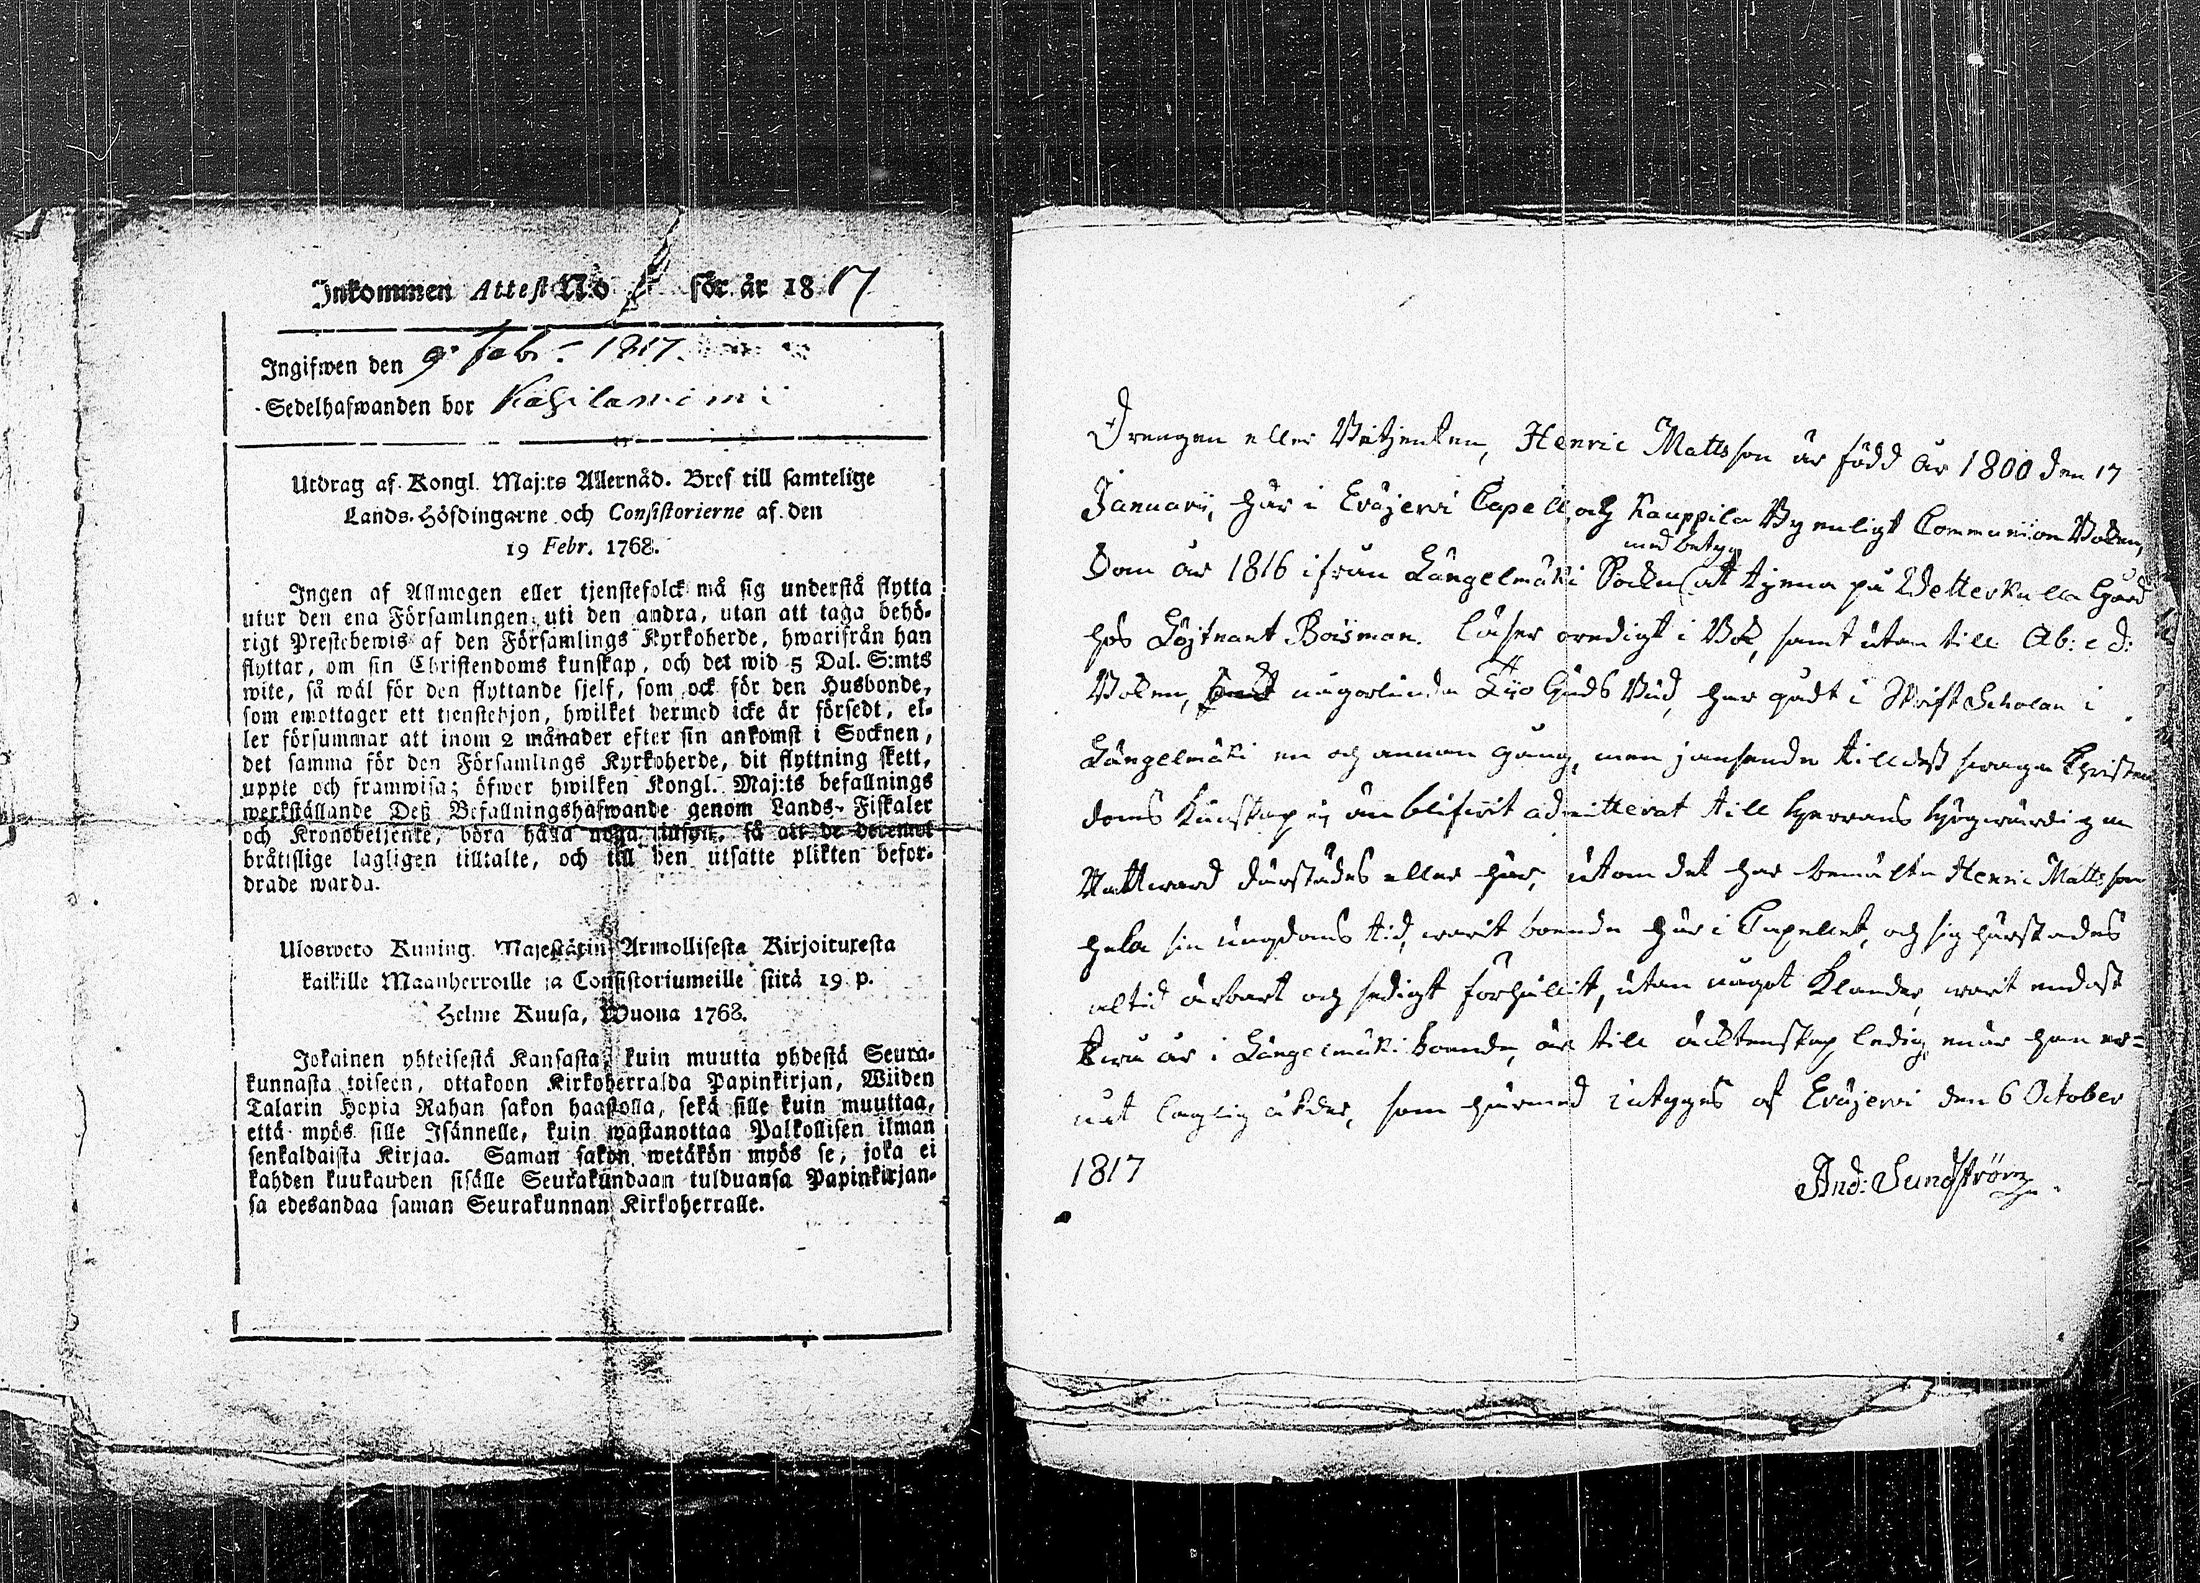 Inkommen Attest N:o för år 1817
Ingifwen den 9 Febr. 1817.
Sedelhafwanden bor
Utdrag af Kongl. Maj:ts Allernåd. Bref till samtelige
Lands-Höfdingarne och Consistorierne af den
19 Febr. 1768.
Ingen af Allmogen eller tjenstefolck må sig understå flytta
utur den ena Församlingen uti den andra, utan att taga behö-
rigt Prestebewis af den Församlings Kyrkoherde, hwarifrån han
flyttar, om sin Christendoms kunskap, och det wid 5 Dal. S:mts
wite, så wäl för den flyttande sjelf, som ock för den Husbonde,
som emottager ett tjenstehjon, hwilket dermed icke är försedt, el-
ler försummar att inom 2 månader efter sin ankomst i Socknen,
det samma för den Församlings Kyrkoherde, dit flyttning skett,
uppte och framwisa; öfwer hwilken Kongl. Maj:ts befallnings
werkställande Deß Befallningshafwande genom Lands-Fiskaler
och Kronobetjente, böra hålla noga insyn, så att de deremot
bråttslige lagligen tilltalte, och till den utsatte plikten befor-
drade warda.
Ulosweto Kuning. Majestätin Armollisesta Kirjoituxesta
kaikille Maanherroille ja Consistoriumeille siitä 19 p.
Helme Kuusa, Wuona 1768.
Jokainen yhteisestä Kansasta, kuin muutta yhdestä Seura-
kunnasta toiseen, ottakoon Kirkoherralda Papinkirjan, Wiiden
Talarin Hopia Rahan sakon haastolla, sekä sille kuin muuttaa,
että myös sille Isännelle, kuin wastanottaa Palkollisen ilman
senkaldaista Kirjaa. Saman sakon wetäkön myös se, joka ei
kahden kuukauden sisälle Seurakundaan tulduansa Papinkirjan-
sa edesandaa saman Seurakunnan Kirkoherralle.
Drengen eller Betjenten, Henric Mattsson är född år 1800 den 17
Januarii, här i Eräjerwi Capell och Kauppila By enligt Communion Boken,
med betyg
Kom år 1816 ifrån Längelmäki Socken att tjena på Wetterkulla Gård
hos Löjtnant Boisman. läser oredigt i Bok, samt utan till Ab: c d:
Boken, någorlunda Tijo Guds Bud, har gådt i Skrift Scholan i
Längelmäki en och annan gång, men i anseende till dess swaga Christen
doms kunskap ej än blifwit admitterat till Herrans Högwärdige
Nattward därstädes eller här, utom det har bemälte Henric Mattsson
hela sin ungdoms tid, warit boende här i Capellet, och sig härstädes
altid ärbart och sedigt förhållit, utan något klander, warit endast
twå år i Längelmäki boende, är till äcktenskap ledig, när han er-
nåt laglig ålder, som härmed intygas af Eräjerwi den 6 October
1817
And: Sundström